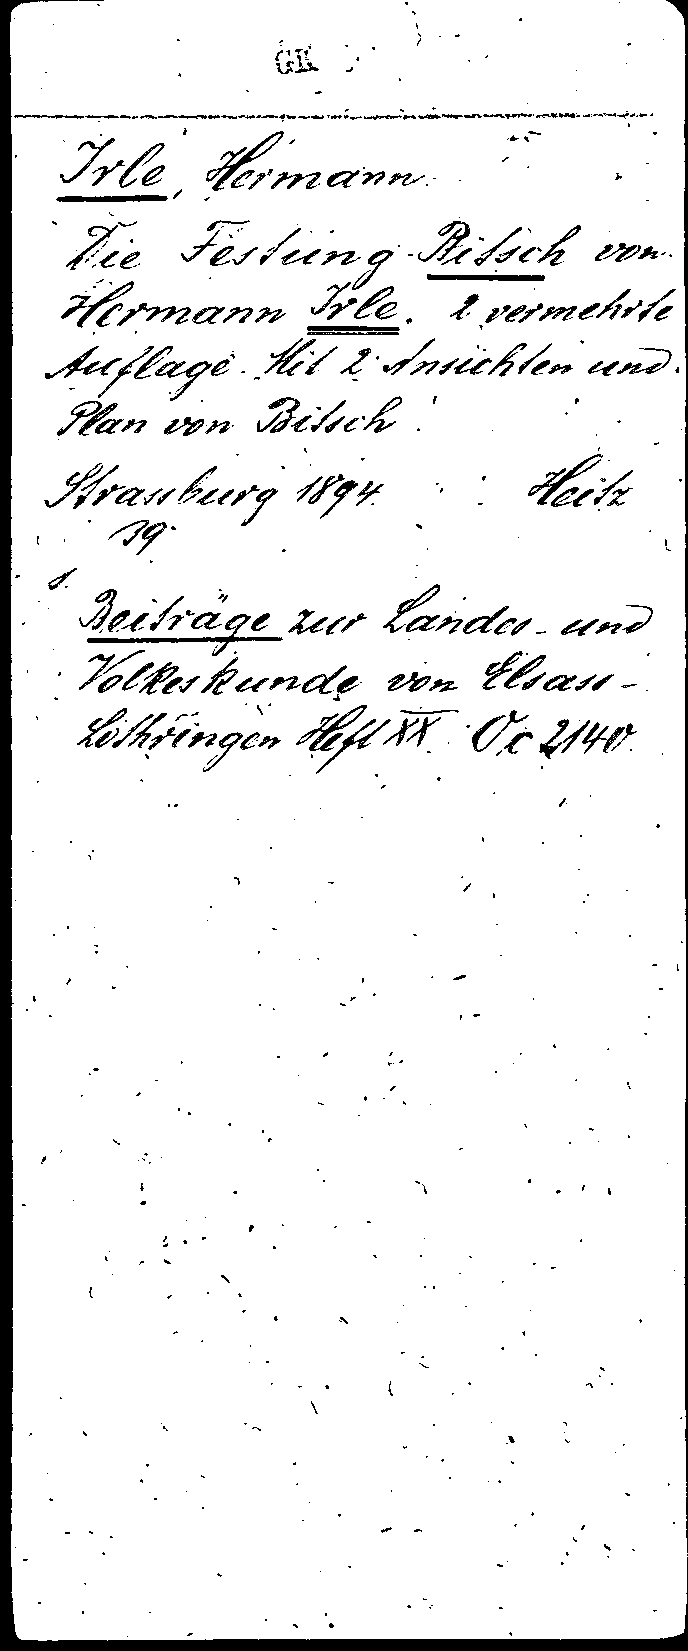 GK
Irle, Hermann
Die Festung Bitsch von
Hermann Irle. 2 vermehrte
Auflage. Mit 2 Ansichten und
Plan von Bitsch
Strassburg 1894. Heitz
39
s.
Beiträge zur Landes- und
Volkeskunde von Elsass-
Lothringen Heft XX. Oc 2140